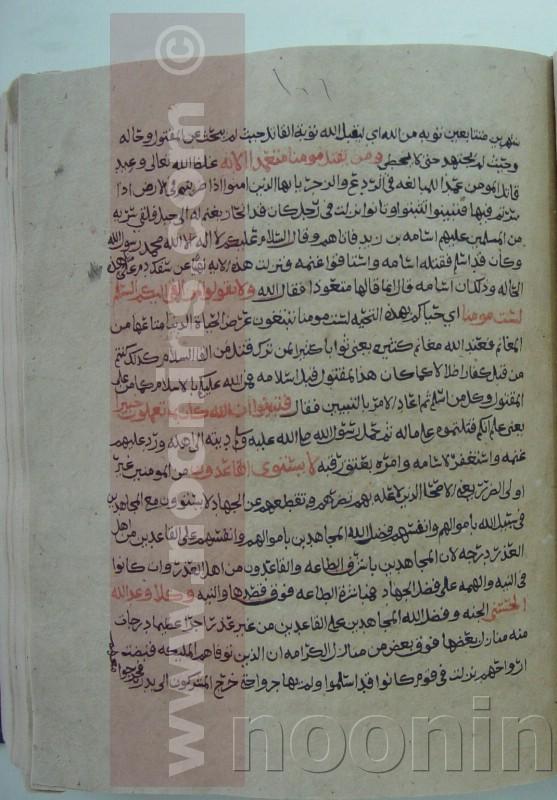 ١٠١
شهرين متتابعين توبة من الله اي ليقبل الله توبة القاتل حيث لم يبحث عن المقتول وحاله
وحيث لم يجتهد حتى لا يخطي ومن يقتل مومنا متعمدا الايه غلظ الله تعالى وعيد
قاتل المومن عمدا للمبالغه في الردع والزجر يا يها الذين امنوا اذا ضربتم في الارض اذا
سرتم فيها فتبينوا نزلت في رجل كان قد انحاز بغنم له الى جبل فلقي سريه
من المسلمين عليهم اسامه بن زيد فاتاهم وقال السلام عليكم لا اله الا الله محمد رسول الله
وكان قد اسلم فقتله اسامه واستاقوا غنمه فنزلت هذه الايه نهيا عن سفك دم على هذه
الحاله وذلك ان اسامه قال انما قالها متعوذا فقال الله ولا تقولوا لمن القى اليكم السلام
لست مومنا اي حياكم بهذه التحيه لست مومنا تبتغون عرض الحياة الدنيا متاعها من
الغنائم فعند الله مغانم كثيره يعني ثوابا كثيرا لمن ترك قتل من القى السلام كذلك كنتم
من قبل كفارا ضلالا كما كان هذا المقتول قبل اسلامه فمن الله عليكم بالاسلام كما من على
المقتول وكل من اسلم ثم اعاد الامر بالتبيين فقال فتبينوا ان الله كان بما تعملون خبيرا
يعني علم انكم قتلتموه على ماله ثم حمل رسول الله صلى الله عليه ديته الى اهله ورد عليهم
غنمه واستغفر لاسامه وامره بعتق رقبه لا يستوي القاعدون من المومنين غير
اولي الضرر يعني الا اصحاب الذين لا عله بهم تضرهم وتقطعهم عن الجهاد لا يستوون مع المجاهدين
في سبيل الله باموالهم وانفسهم فضل الله المجاهدين باموالهم وانفسهم على القاعدين من اهل
العذر درجه لان المجاهدين باشروا الطاعه والقاعدون من اهل العذر وان كانوا
في النيه والهمه على قصد الجهاد فمباشرة الطاعه فوق قصدها والنيه وكلا وعد الله
الحسنى الجنه وفضل الله المجاهدين على القاعدين من غير عذر اجرا عظيما درجات
منه منازل بعضها فوق بعض من منازل الكرامه ان الذين توفاهم الملئكه قبضت
ارواحهم نزلت في قوم كانوا قد اسلموا ولم يهاجروا حتى خرج المشركون الى بدر فخرجوا
www.noormicrofilmindia.com ©
noonin